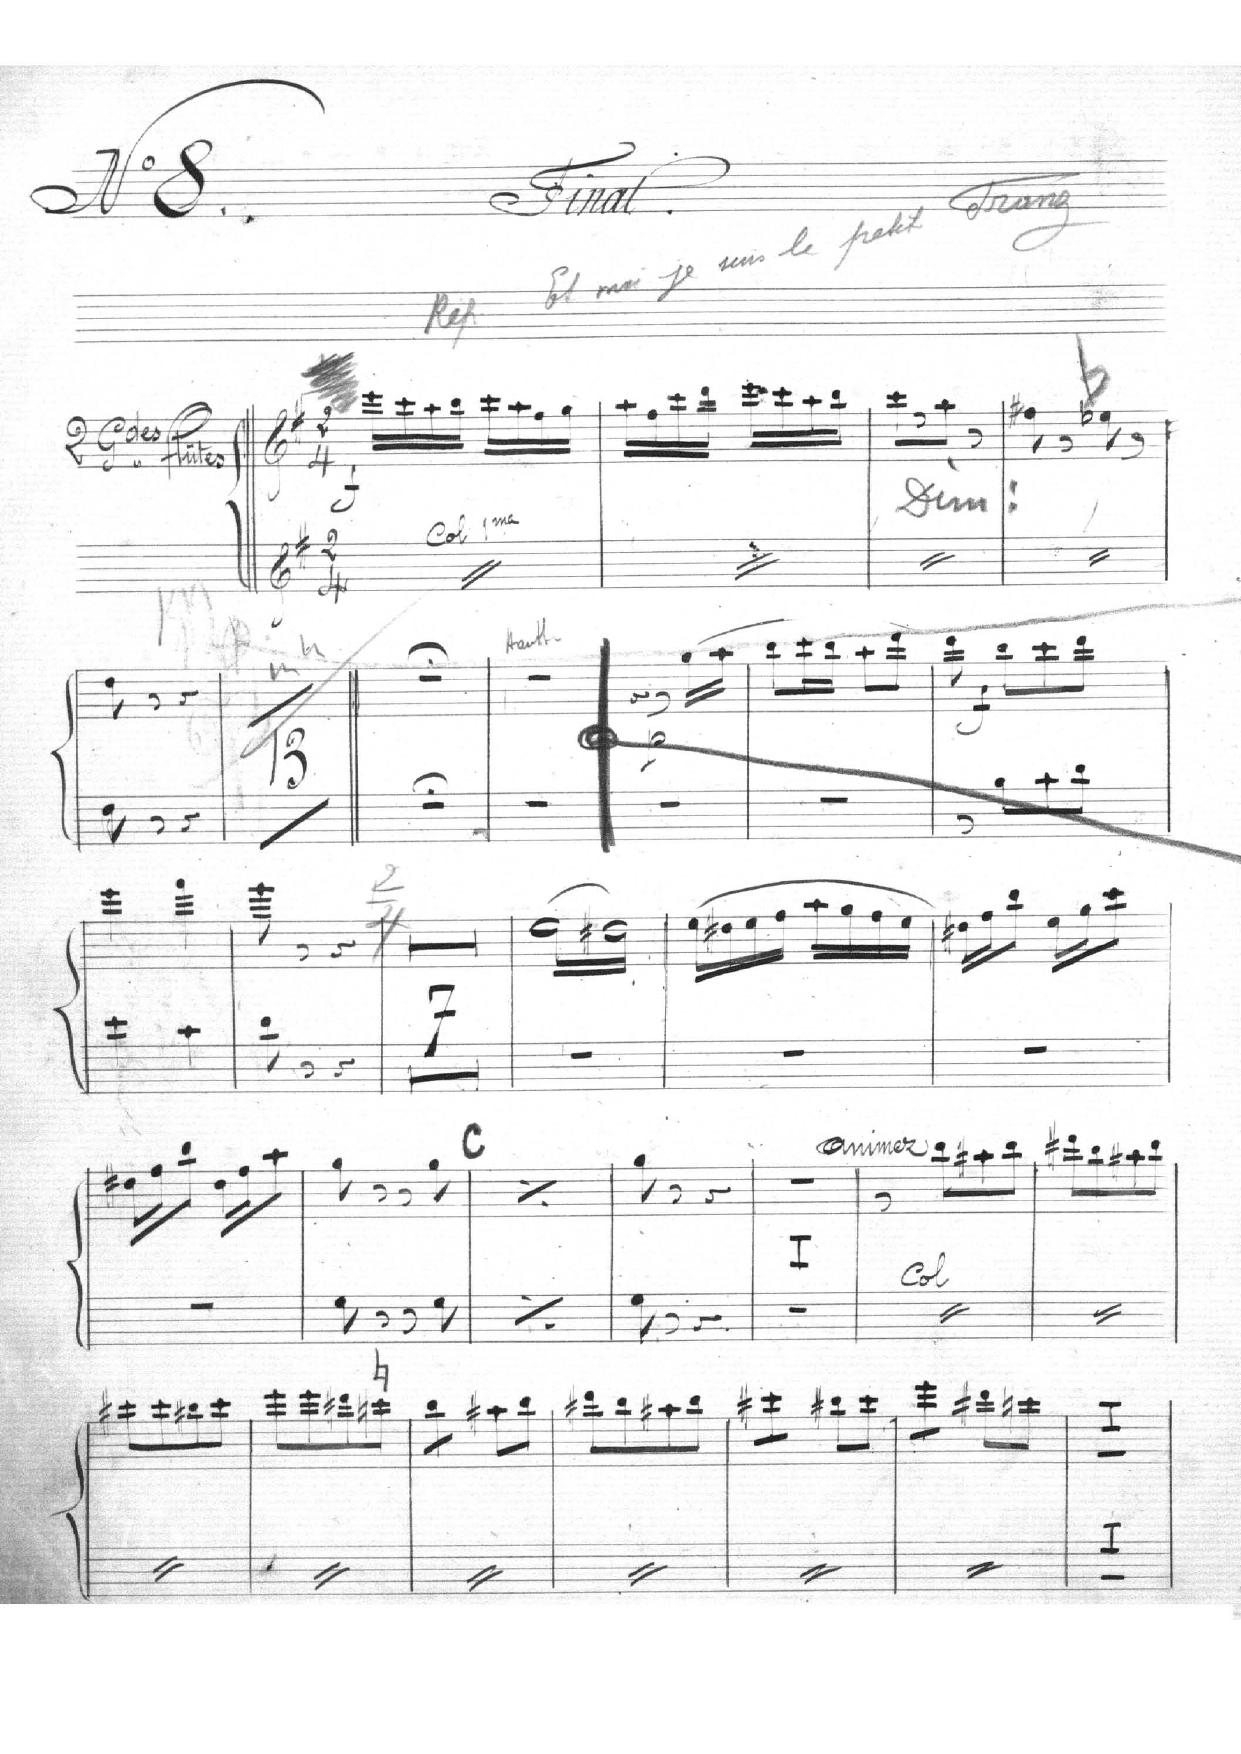 Nº 8.
Final.
Rép Et moi je suis le petit Trang
2 Gdes flûtes
2
4
f
Dim:
Col 1ma
2
4
13
Hautb
f
2
4
7
C
animez
I
Col
I
I